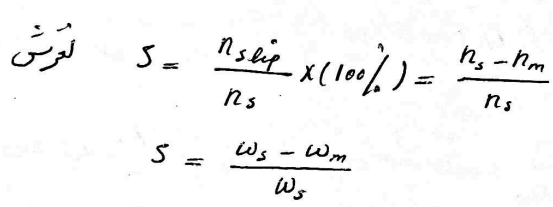 لغزش S = n_slip / n_s ×(100%) = n_s - n_m / n_s
S = ω_s - ω_m / ω_s